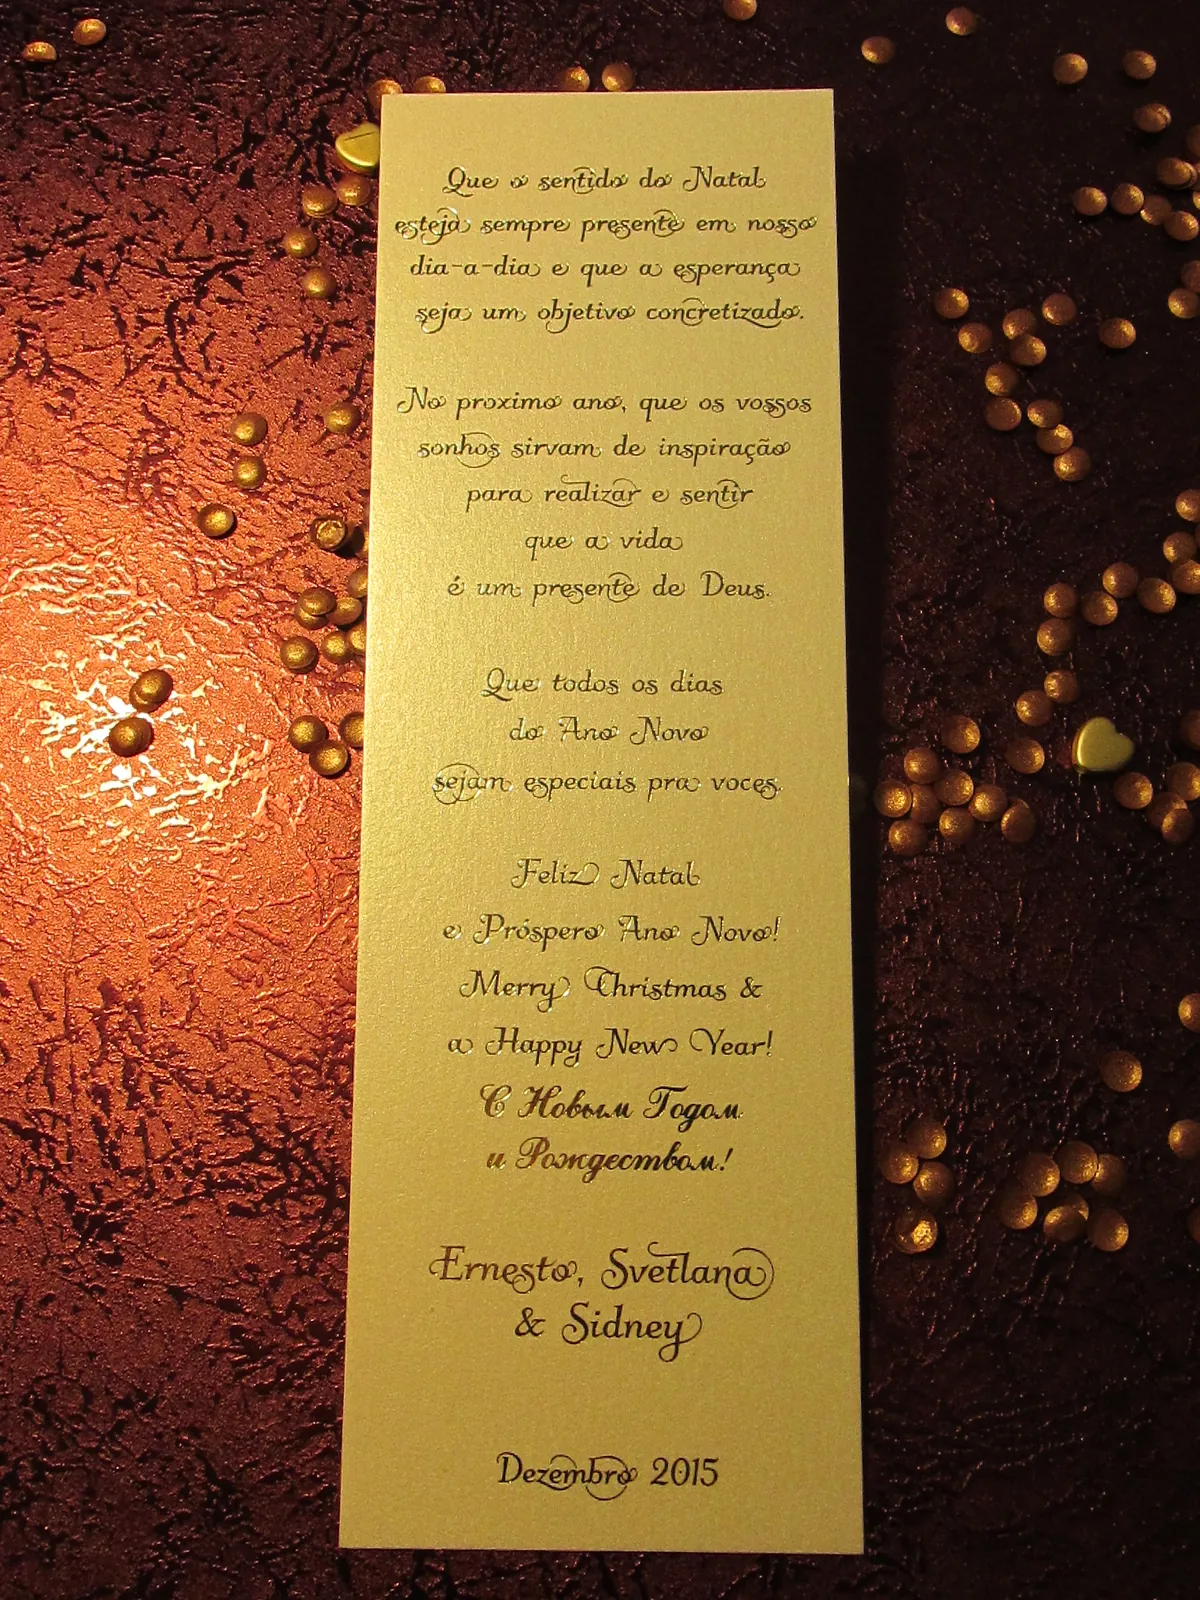 Que o sentido do Natal
esteja sempre presente em nosso
dia-a-dia e que a esperança
seja um objetivo concretizado.
No proximo ano, que os vossos
sonhos sirvam de inspiração
para realizar e sentir
que a vida
é um presente de Deus.
Que todos os dias
do Ano Novo
sejam especiais pra voces.
Feliz Natal
e Próspero Ano Novo!
Merry Christmas &
a Happy New Year!
С Новым Годом
и Рождеством!
Ernesto, Svetlana
& Sidney
Dezembro 2015